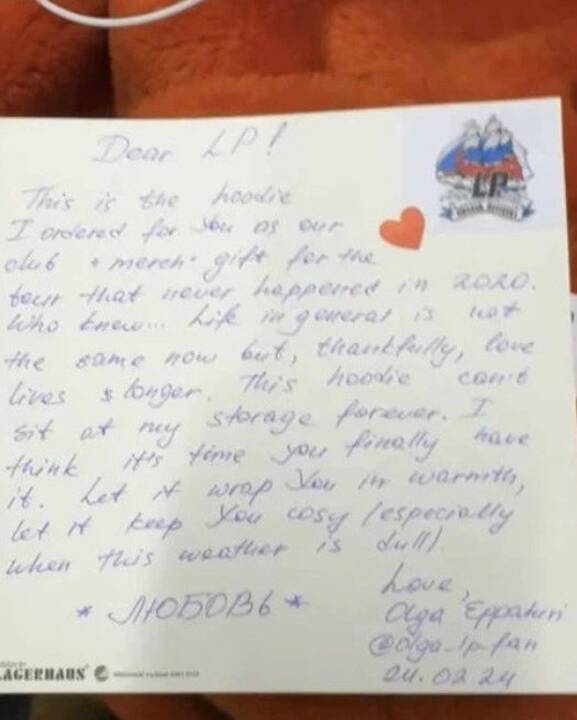 Dear LP!
LP
This is the hoodie
I ordered for You as our
club "merch" gift for the
tour that never happened in 2020.
Who knew... Life in general is not
the same now but, thankfully, love
lives longer. This hoodie can't
sit at my storage forever. I
think it's time you finally have
it. Let it wrap You in warmth,
let it keep You cosy (especially
when this weather is dull)
Love,
* ЛЮБОВЬ *
Olga
@olga_lp_fan
24.02.24
LAGERHAUS